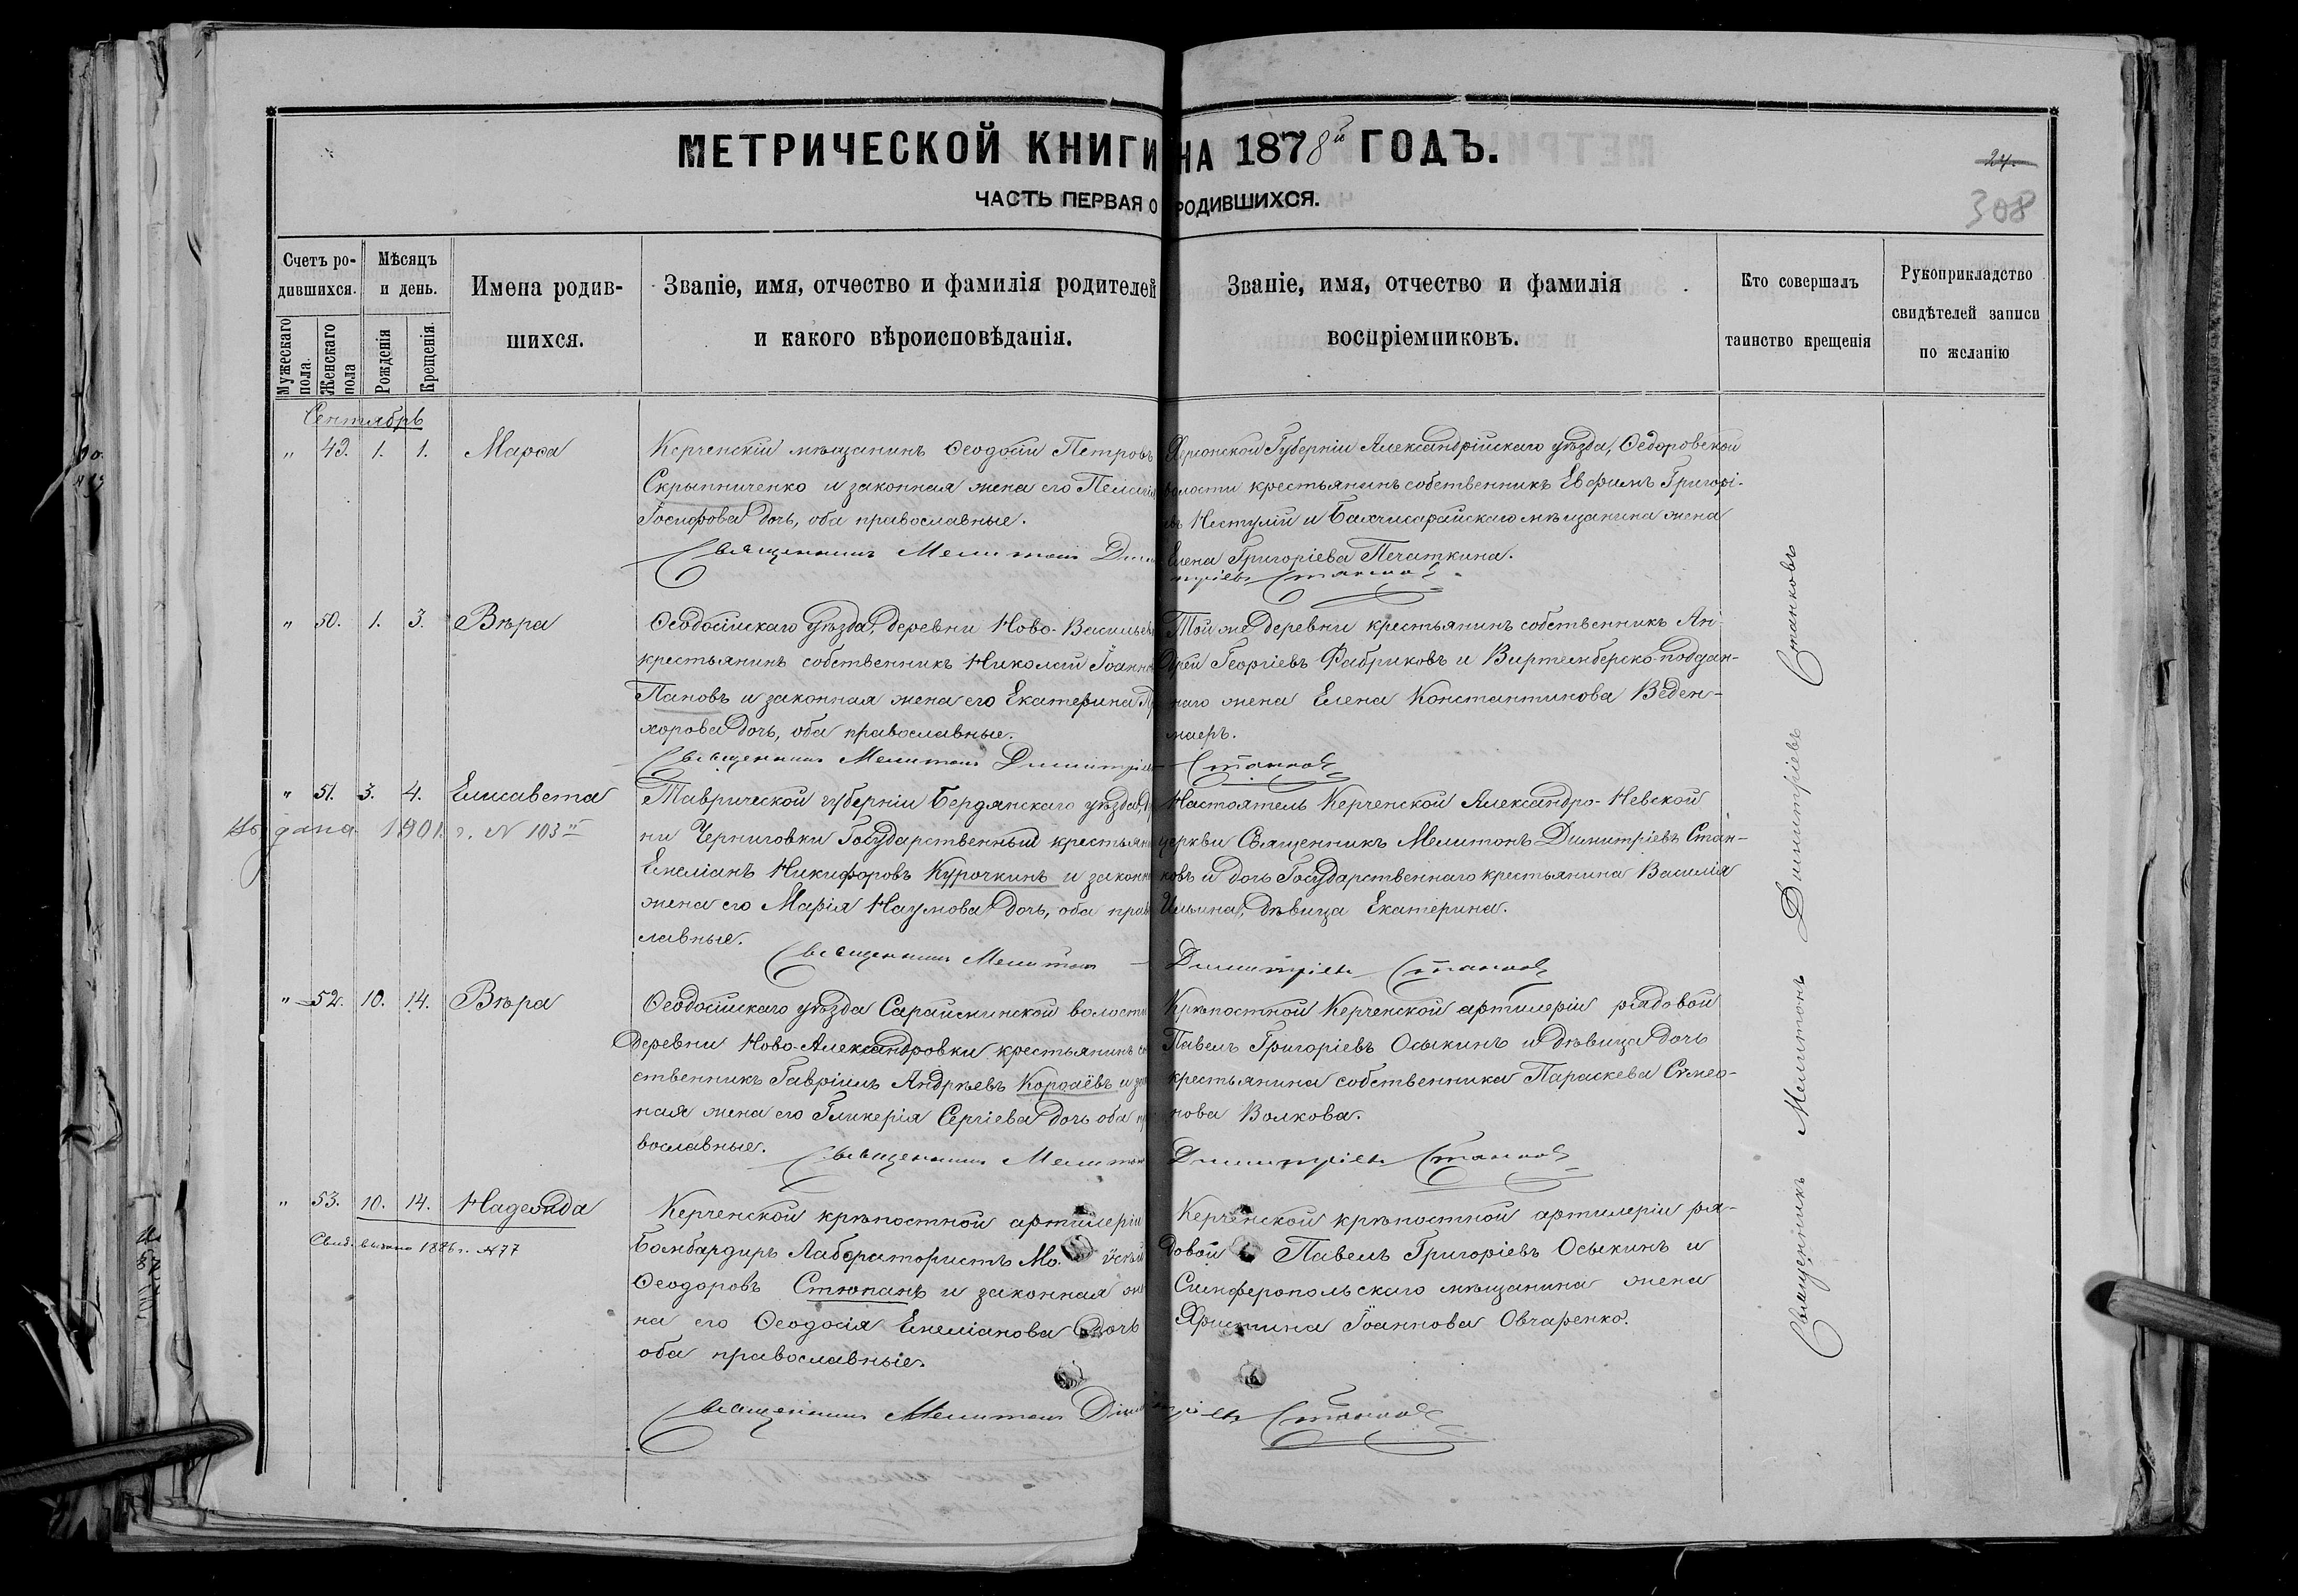 МЕТРИЧЕСКОЙ КНИГИ НА 1878й ГОДЪ.
24.
308
ЧАСТЬ ПЕРВАЯ О РОДИВШИХСЯ.
Счетъ ро-
дившихся.
Мужескаго пола.
Женскаго пола
Мѣсяцъ
и день.
Рожденія
Крещенія.
Имена родив-
шихся.
Званіе, имя, отчество и фамилія родителей
и какого вѣроисповѣданія.
Званіе, имя, отчество и фамилія
воспріемниковъ.
Кто совершалъ
таинство крещенія
Рукоприкладство
свидѣтелей записи
по желанію
Сентябрь
" 49. 1. 1. Марѳа
Керченскій мѣщанинъ Ѳеодосій Петровъ
Скрыпниченко и законная жена его Пелагія
Іосифова дочь, оба православные.
Херсонской Губерніи Александрійскаго уѣзда, Ѳедоровской
волости крестьянинъ собственникъ Евфимъ Григорі-
евъ Нестулій и Бахчисарайскаго мѣщанина жена
Елена Григоріева Печаткина.
Священникъ Мелитонъ Димитріевъ Станковъ
" 50. 1. 3. Вѣра
Ѳеодосійскаго уѣзда, деревни Ново-Василье
крестьянинъ собственникъ Николай Іоанно
Пановъ и законная жена его Екатерина Пр
хорова дочь, оба православные.
Той же деревни крестьянинъ собственникъ Ан-
дрей Георгіевъ Фабриковъ и Виртемберско-поддан-
наго жена Елена Константинова Веден-
маеръ.
Священникъ Мелитонъ Димитріевъ Станковъ
" 51. 3. 4. Елисавета
дана 1901 г. N 103
Таврической губерніи Бердянскаго уѣзда, д
ни Черниговки Государственный крестьян
Емеліанъ Никифоровъ Курочкинъ и законн
жена его Марія Наумова дочь, оба прав
лавные.
Настоятель Керченской Александро-Невской
церкви Священникъ Мелитонъ Димитріевъ Стан-
ковъ и дочь Государственнаго крестьянина Василія
Ильина, дѣвица Екатерина.
Священникъ Мелитонъ Димитріевъ Станковъ
" 52. 10. 14. Вѣра
Ѳеодосійскаго уѣзда Сарайминской волости
деревни Ново-Александровки крестьянинъ со
ственникъ Гавріилъ Андреевъ Корсаёвъ и за
ная жена его Гликерія Сергіева дочь оба пра
вославные.
Крѣпостной Керченской артилеріи рядовой
Павелъ Григоріевъ Осыкинъ и дѣвица дочь
крестьянина собственника Параскева Сѵмео-
нова Волкова.
Священникъ Мелитонъ Димитріевъ Станковъ
" 53. 10. 14. Надежда
Свид. выдано 1886 г. N 77
Керченской крѣпостной артилеріи
Бомбардиръ Лаборатористъ
Ѳеодоровъ Стюпанъ и законная же
на его Ѳеодосія Емеліанова дочь
оба православные.
Керченской крѣпостной артилеріи ря-
довой Павелъ Григоріевъ Осыкинъ и
Симферопольскаго мѣщанина жена
Христина Іоаннова Овчаренко.
Священникъ Мелитонъ Димитріевъ Станковъ
Священникъ Мелитонъ Димитріевъ Станковъ